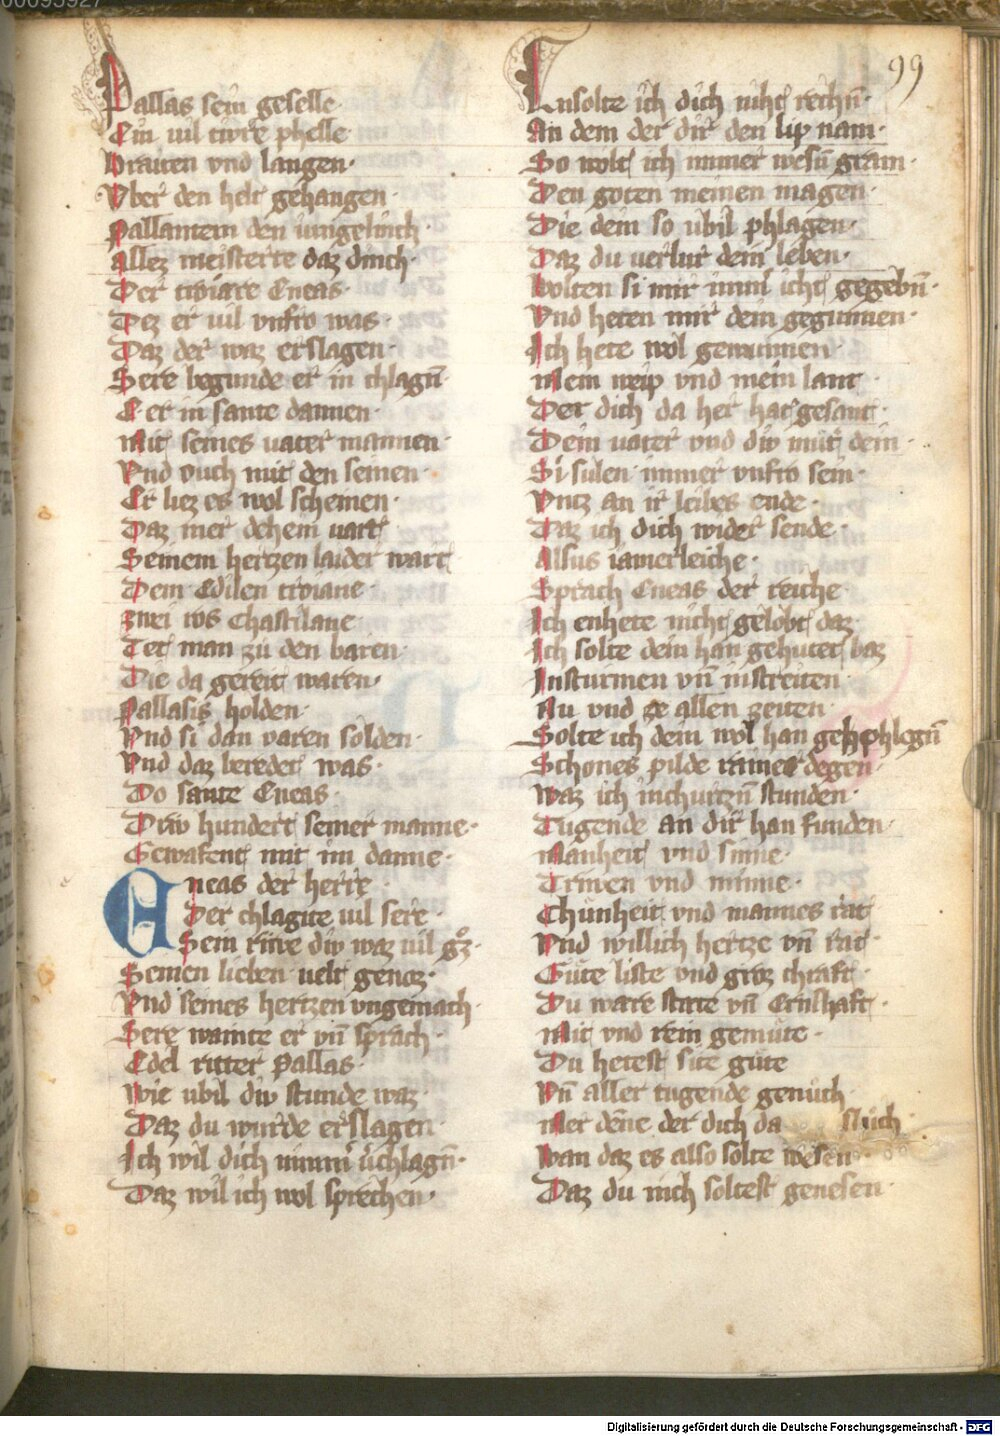 99
Pallas sein geselle
Ein uil tiwre phelle
Braiten vnd langen·
Vber den helt gehangen·
Pallantem den iungelinch·
Allez meisterte daz dinch·
Der troiare Eneas·
Dez er uil vnfro was·
Daz der waz erslagen·
Sere begunde er in chlagn̄·
Er in sante dannen·
Mit seines uater mannen·
Vnd ouch mit den seinen·
Er liez es wol scheinen·
Daz mer dehein uart
Seinem hertzen laider wart
Dem Edilen troiane
Zwei ros Chastilane
Tet man zu den baren·
Die da gereit waren·
Pallasis holden·
Vnd si dan varen solden·
Vnd daz beredet was·
Do sante Eneas·
Driv hundert seiner manne·
Gewafent mit im danne·
Eneas der herre
Der chlagite uil sere·
Sein riwe div waz uil goz·
Seinen lieben uelt genoz·
Vnd seines hertzen vngemach·
Sere wainte er vn̄ sprach·
Edel ritter Pallas·
Wie ubil div stunde waz·
Daz du wurde erslagen·
Ich wil dich chlagn̄·
Daz wil ich wol sprechen·
Ensolte ich dich niht rechn̄·
An dem der dir den lip nam·
So wolt ich immer wesn̄ gram·
Den goten meinen magen·
Die dein so ubil phlagen·
Daz du uerlur dein leben·
Wolten si mir icht gegebn̄·
Vnd heten mir dein gegunnen·
Ich hete wol gewunnen·
Mein weip vnd mein lant
Der dich da her hat gesant·
Dein uater vnd div muter dein·
Si sulen immer vnfro sein·
Vntz an ir leibes ende·
Daz ich dich wider sende·
Alsus iamerleiche·
Sprach Eneas der reiche
Ich enhete nicht gelobt daz
Ich solte dein han gehutet baz
In sturmen vn̄ in streiten·
Nu vnd ze allen zeiten·
Solte ich dein wol han geh phlegn̄
Schones pilde degen·
Waz ich in churtzn̄ stunden·
Tugende an dir han funden·
Manheit vnd sinne·
Triwen vnd minne·
Chunheit vnd mannes rat
Vnd willich hertze vn̄ rat·
Gute liste vnd groz chraft·
Du ware state vn̄ Ernshaft·
Mit vnd rein gemute·
Du hetest site gute
Vn̄ aller tugende genuch·
Mer dēne der dich da sluch·
Wan daz es also solte wesen·
Daz du nich soltest genesen·
Digitalisierung gefördert durch die Deutsche Forschungsgemeinschaft - DFG